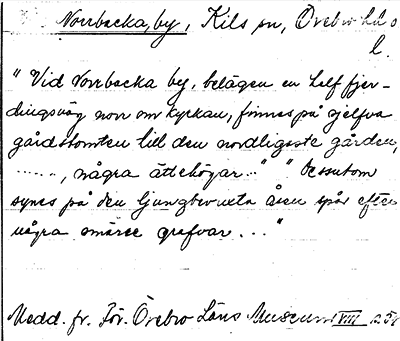 Norrbacka, by, Kils sn, Örebro län
l.
"Vid Norrbacka by, belägen en half fjer-
dingsväg norr om kyrkan, finnes på sjelfva
gårdstomten till den nordligaste gården,
......, några ättehögar.." "Dessutom
synes på den ljungbevuxta åsen spår efter
några smärre grafvar..."
Medd. fr. För. Örebro Läns Museum VIII